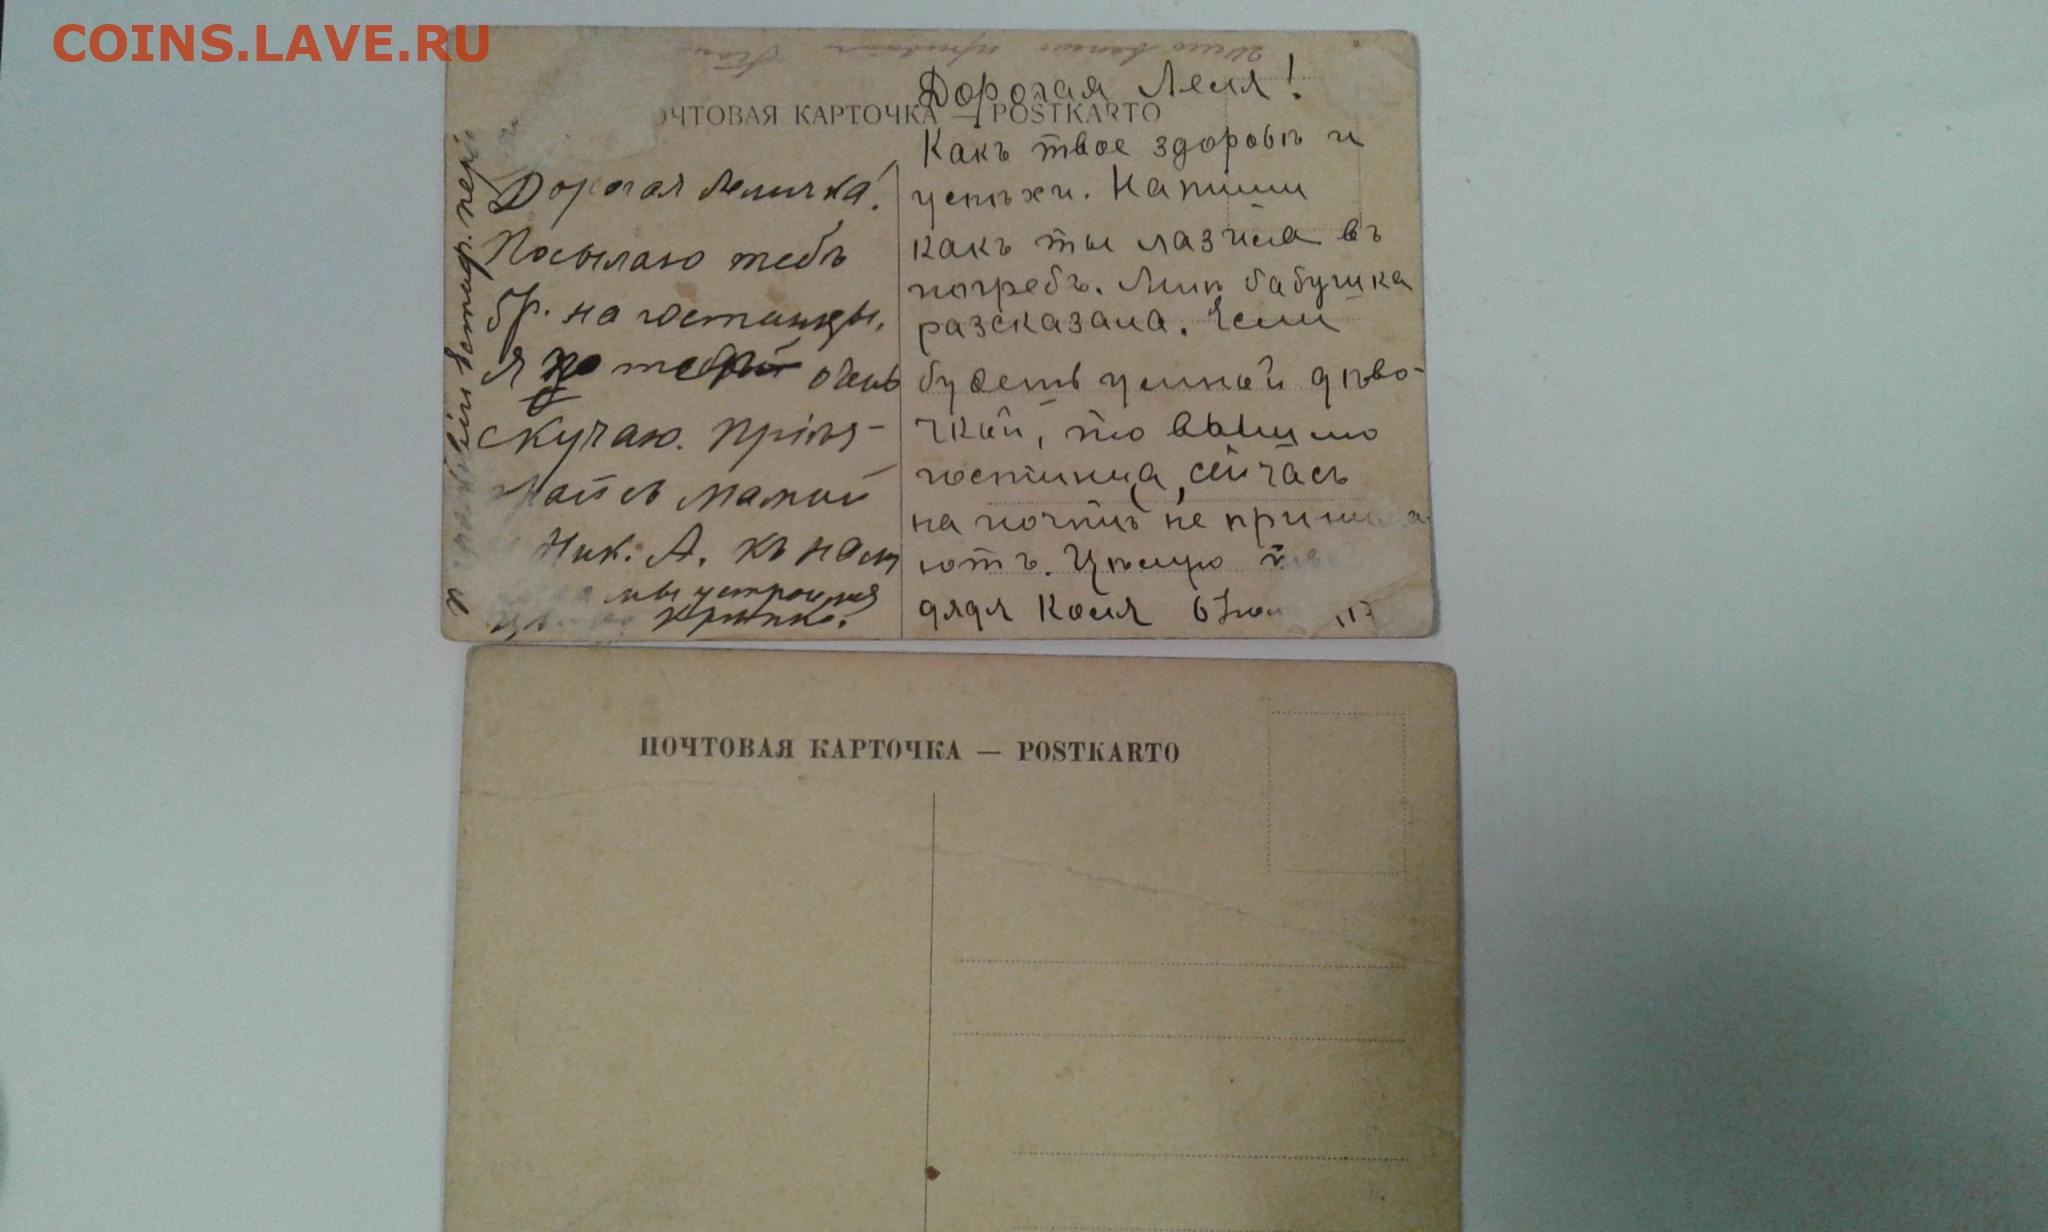 COINS.LAVE.RU
ОЧТОВАЯ КАРТОЧКА — POŜTKARTO
Дорогая Леличка!
Посылаю тебѣ
5р. на гостинцы.
Я по тебѣ очень
скучаю. Пріѣз-
жай съ мамой
Ник. А. къ нам
мы устроимся
крѣпко.
Дорогая Леля!
Какъ твое здоровье и
успѣхи. Напиши
какъ ты лазила въ
погребъ. Мнѣ бабушка
разсказала. Если
будешь умной дѣво-
чкой, то вышлю
гостинца, сейчасъ
на почтѣ не принима
ютъ. Цѣлую
дядя Коля 6
ПОЧТОВАЯ КАРТОЧКА — POSTKARTO